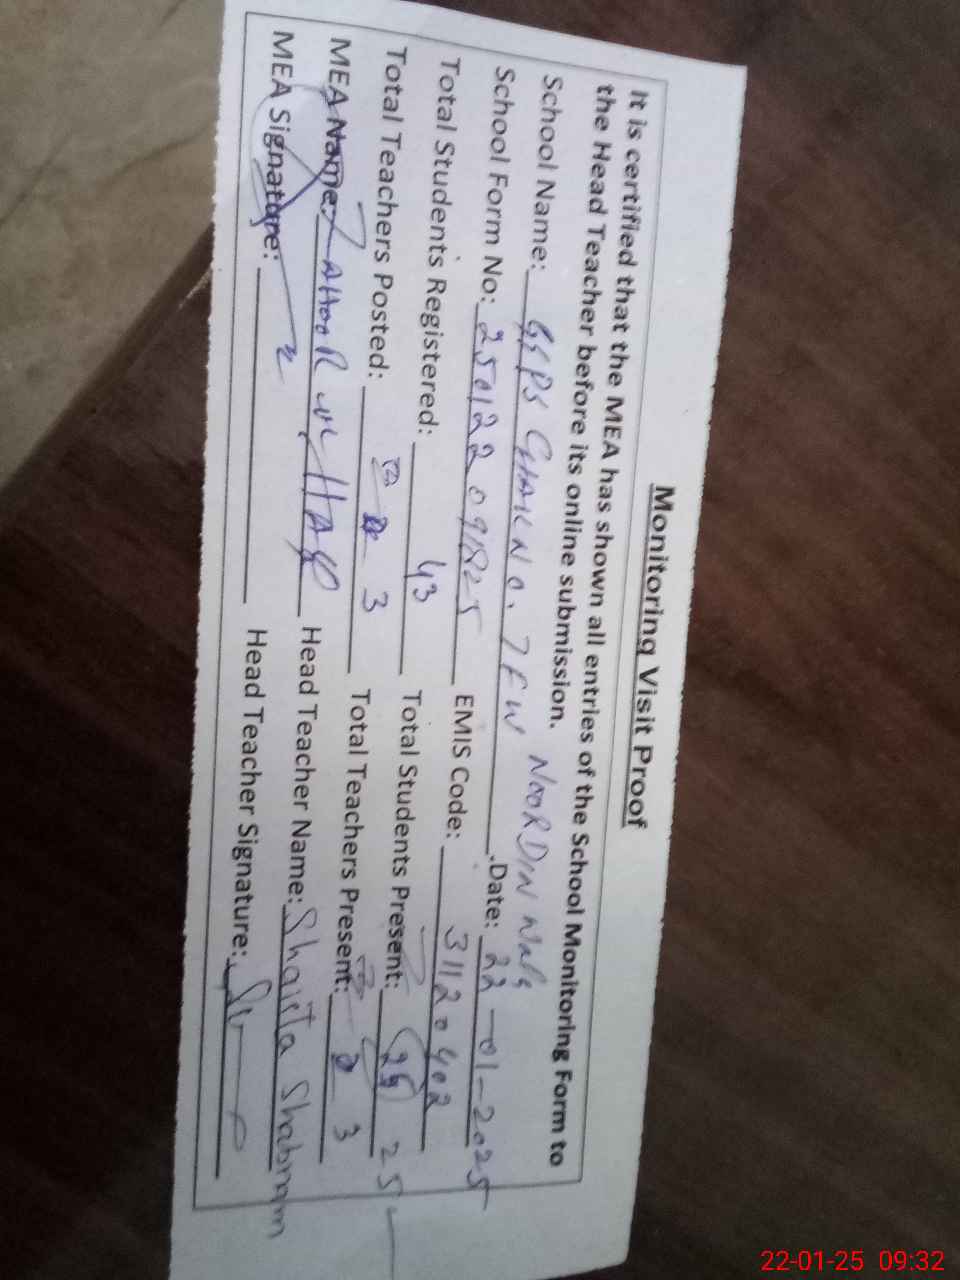 Monitoring Visit Proof
It is certified that the MEA has shown all entries of the School Monitoring Form to
the Head Teacher before its online submission.
School Name: GGPS CHAK NO. 7 FW NOOR DIN Wala
School Form No: 250122091825 .Date: 22-01-2025
Total Students Registered: 43 EMIS Code: 31120402
Total Teachers Posted: 3 Total Students Present: 25 25
MEA Name: ul HAQ Total Teachers Present: 3
MEA Signature: Head Teacher Name: Shaista Shabnam
Head Teacher Signature:
22-01-25 09:32